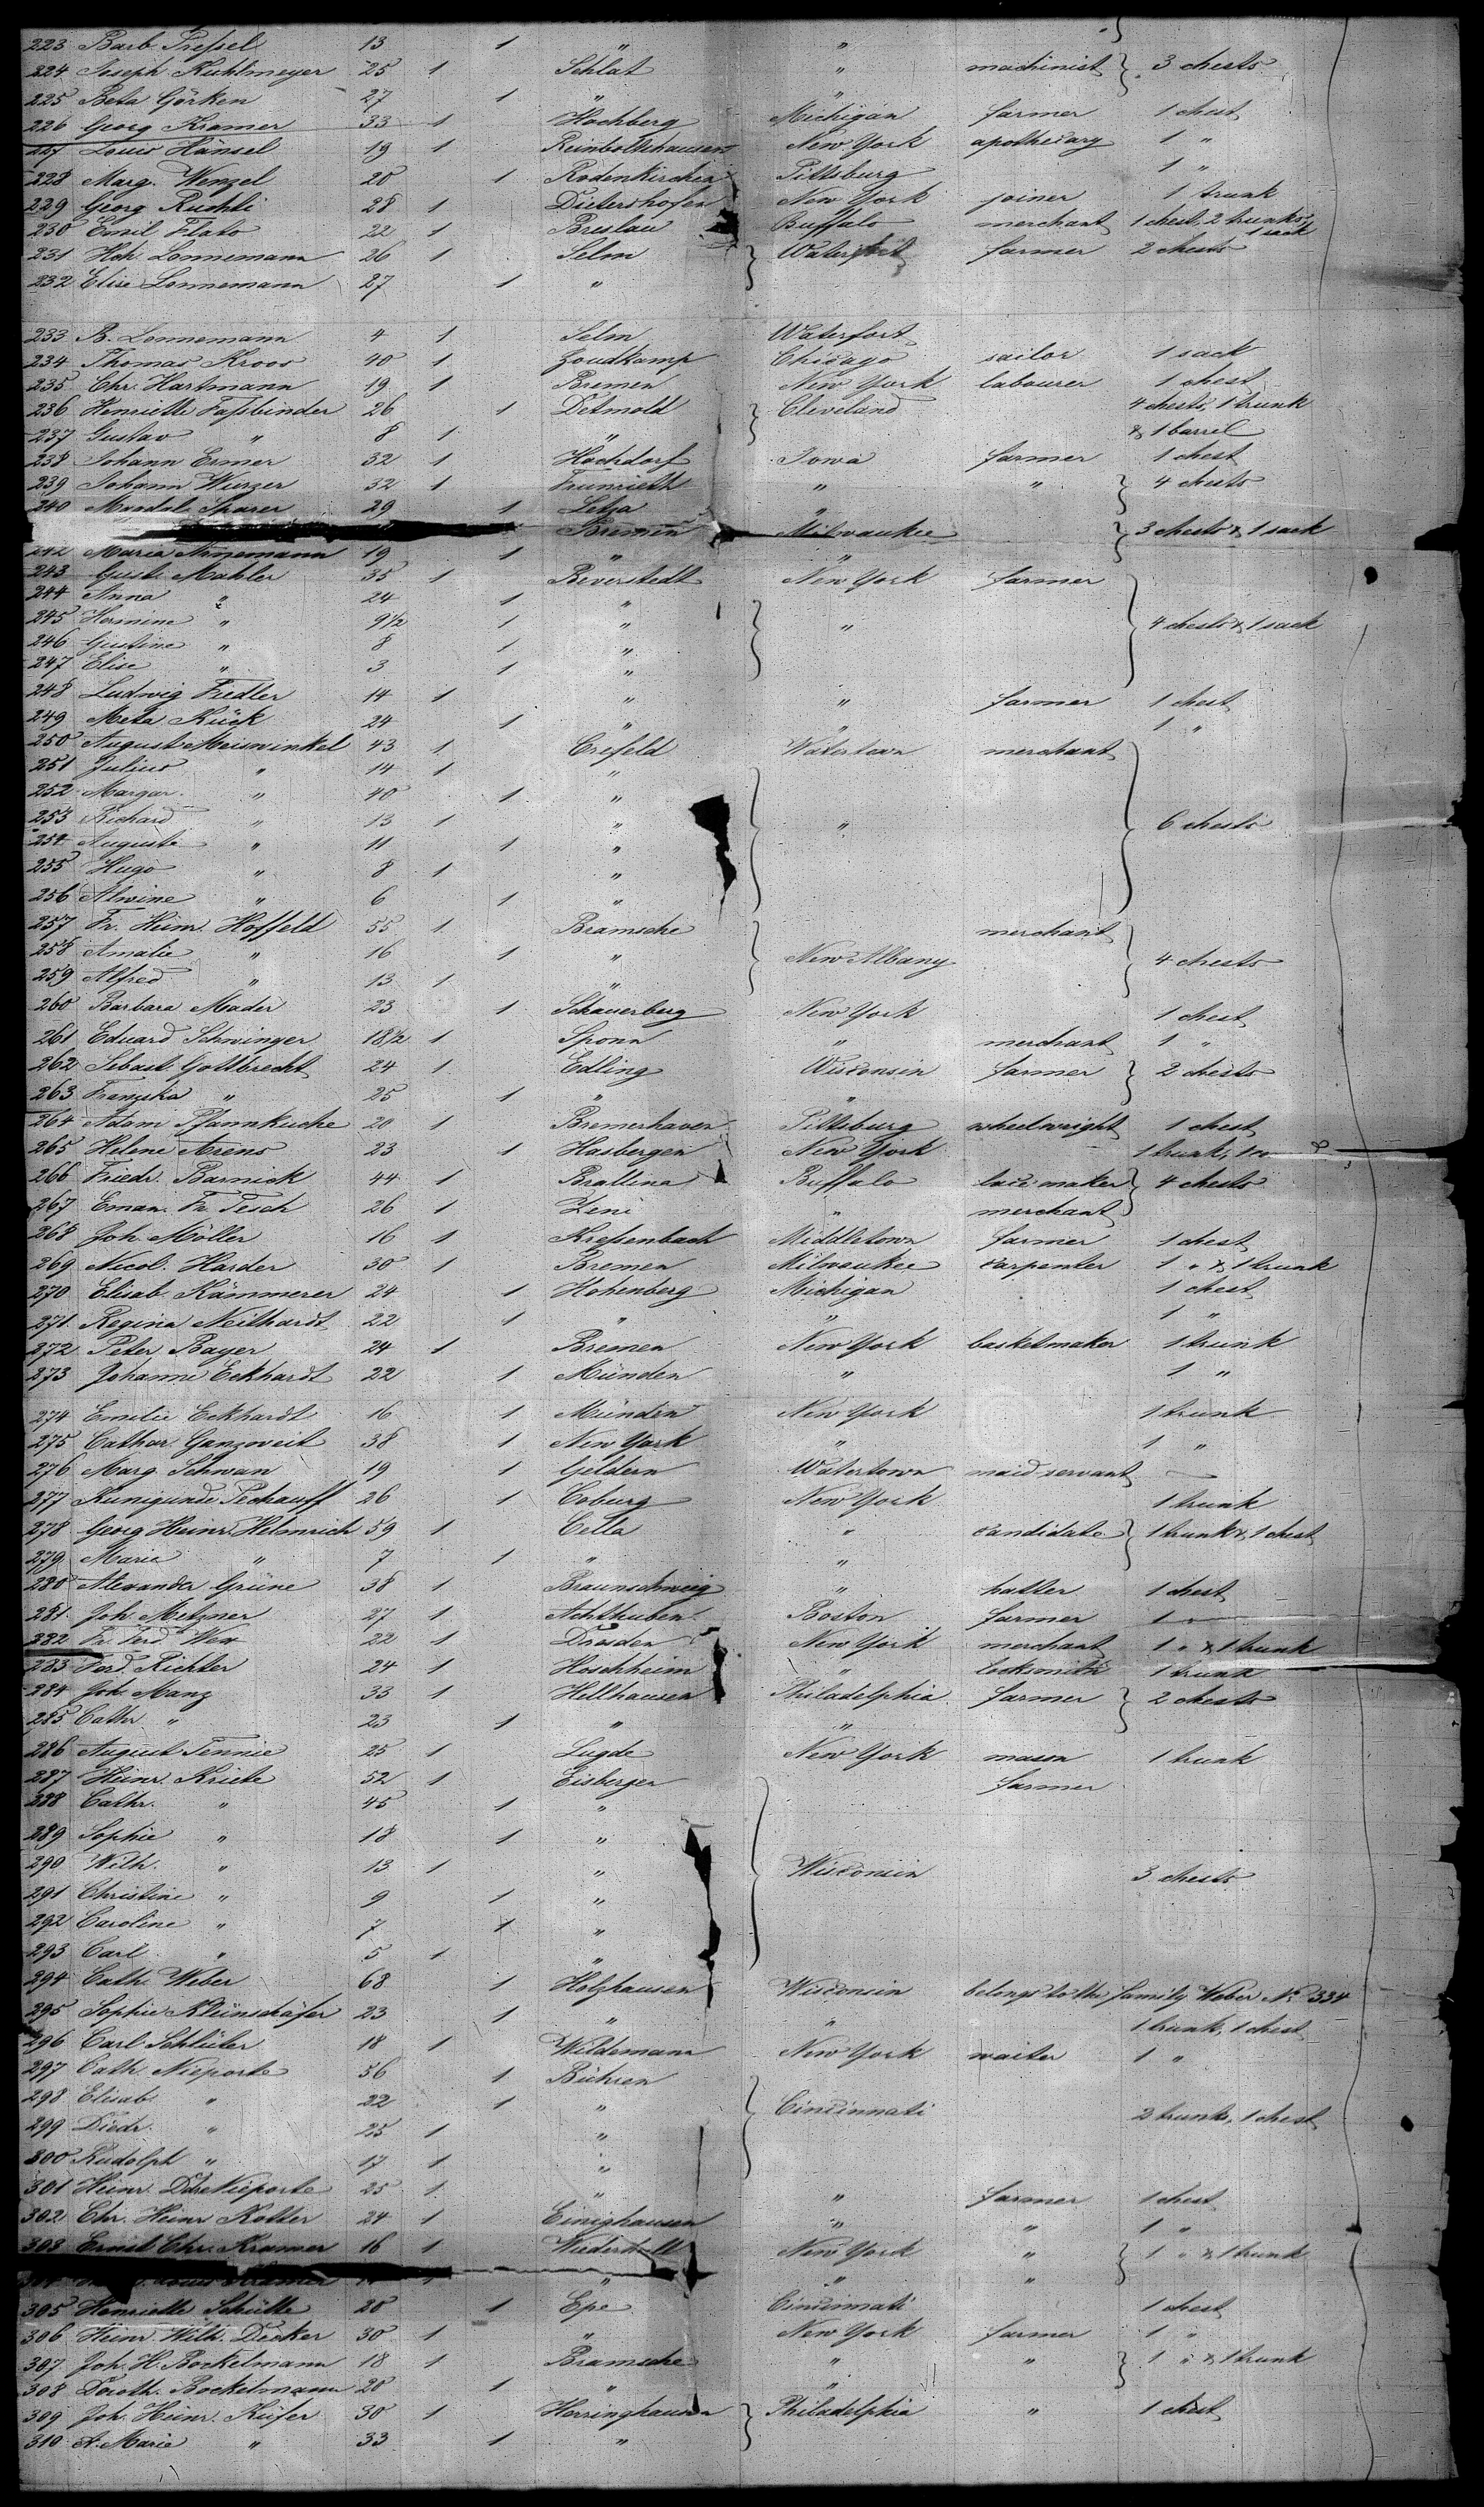 223 Barb. Preßel 13 1 " "
224 Joseph Kuhlmeyer 25 1 Schlat " machinist } 3 chests
225 Beta Görken 27 1 " "
226 Georg Kramer 33 1 Hochberg Michigan farmer 1 chest
227 Louis Hänsel 19 1 New York apothecary 1 "
228 Marg. Wenzel 20 1 Rodenkirchen Pittsburg 1 "
229 Georg Ruchti 28 1 Dietershofen New York joiner 1 trunk
230 Emil Flato 22 1 Breslau Buffalo merchant 1 chest, 2 trunks, 1 sack
231 Hch. Lonnemann 26 1 Selm } Waterfort farmer 2 chests
232 Elise Lonnemann 27 1 "
233 B. Lonnemann 4 1 Selm Waterfort
234 Thomas Kroos 40 1 Zoudkamp Chicago sailor 1 sack
235 Chr. Hartmann 19 1 Bremen New York labourer 1 chest
236 Henriette Faßbinder 26 1 Detmold } Cleveland 4 chests, 1 trunk
237 Gustav " 8 1 " & 1 barrel
238 Johann Ermer 32 1 Hochdorf Iowa farmer 1 chest
239 Johann Wurzer 32 1 Trunrieth " " } 4 chests
240 Magdal. Sparer 29 1 Letza "
Bremen Milwaukee } 3 chests & 1 sack
242 Maria Annemann 19 1 " "
243 Gust. Mahler 35 1 Beverstedt New York farmer
244 Anna " 24 1 "
245 Hermine " 9 1/2 1 " " } 4 chests & 1 sack
246 Gustine " 8 1 "
247 Elise " 3 1 "
248 Ludwig Fiedler 14 1 " " farmer 1 chest
249 Meta Kück 24 1 " " 1 "
250 August Meiswinkel 43 1 Crefeld Watertown merchant
251 Julius " 14 1 "
252 Margar. " 40 1 "
253 Richard " 13 1 " " } 6 chests
254 Auguste " 11 1 "
255 Hugo " 8 1 "
256 Alwine " 6 1 "
257 Fr. Heinr. Hoffeld 55 1 Bramsche merchant
258 Amalie " 16 1 " New Albany } 4 chests
259 Alfred " 13 1 "
260 Barbara Mader 23 1 Schauerberg New York 1 chest
261 Eduard Schwinger 18 1/2 1 Sponn " merchant 1 "
262 Sebast. Gottbrecht 24 1 Edling Wisconsin farmer } 2 chests
263 Franziska " 25 1 " "
264 Adam Pfannkuche 20 1 Bremerhaven Pittsburg wheelwright 1 chest
265 Helene Arens 23 1 Hasbergen New York 1 trunk,
266 Friedr. Barnick 44 1 Brallina Buffalo lace maker } 4 chests
267 Eman. Fr. Tesch 26 1 Zeni " merchant
268 Joh. Möller 16 1 Kreßenbach Middletown farmer 1 chest
269 Nicol. Harder 30 1 Bremen Milwaukee carpenter 1 " & 1 trunk
270 Elisab. Kämmerer 24 1 Hohenberg Michigan 1 chest
271 Regina Neithardt 22 1 " " 1 "
272 Peter Bayer 24 1 Bremen New York basketmaker 1 trunk
273 Johanne Eckhardt 22 1 Münden " 1 "
274 Emilie Eckhardt 16 1 Münden New York 1 trunk
275 Cathar. Ganzoveit 38 1 New York " 1 "
276 Marg. Schwan 19 1 Geldern Watertown maid servant —
277 Kunigunde Pechauff 26 1 Coburg New York 1 trunk
278 Georg Heinr. Helmrich 59 1 Cella " candidate } 1 trunk & 1 chest
279 Marie " 7 1 " "
280 Alexander Grüne 38 1 Braunschweig " hatter 1 chest
281 Joh. Metzner 27 1 Achthuben Boston farmer 1 "
282 Fr. Ferd. Wex 22 1 Dresden New York merchant 1 " & 1 trunk
283 Ferd. Richter 24 1 Hochheim " locksmith 1 trunk
284 Joh. Manz 33 1 Hillhausen Philadelphia farmer } 2 chests
285 Cathr. " 23 1 " "
286 August Tennie 25 1 Lugde New York mason 1 trunk
287 Heinr. Kriete 52 1 Eisbergen farmer
288 Cathr. " 45 1 "
289 Sophie " 18 1 "
290 Wilh. " 13 1 " Wisconsin 3 chests
291 Christine " 9 1 "
292 Caroline " 7 1 "
293 Carl " 5 1 "
294 Cath. Weber 68 1 Holzhausen Wisconsin belongs to the family Weber No. 334
295 Sophie Kleinschäfer 23 1 " " 1 trunk, 1 chest
296 Carl Schlüter 18 1 Wildemann New York waiter 1 "
297 Cath. Nieporte 56 1 Bühren
298 Elisab. " 22 1 " } Cincinnati 2 trunks, 1 chest
299 Diedr. " 25 1 "
300 Rudolph " 17 1 "
301 Heinr. Nieporte 25 1 " " farmer 1 chest
302 Chr. Heinr. Kotter 24 1 Einighausen " " 1 "
303 Ernst Chr. Kramer 16 1 New York " } 1 " & 1 trunk
Louis Kramer " " "
305 Henriette Schütte 20 1 Epe Cincinnati 1 chest
306 Heinr. Wilh. Decker 30 1 " New York farmer 1 "
307 Joh. H. Bockelmann 18 1 Bramsche " " } 1 " & 1 trunk
308 Doroth. Bockelmann 20 1 " "
309 Joh. Heinr. Küfer 30 1 Herringhausen } Philadelphia " 1 chest
310 A. Marie " 33 1 "